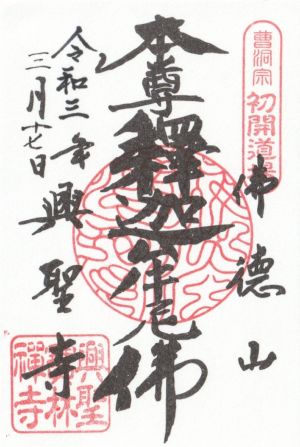 曹洞宗
初開道場
佛德山
本尊釋迦牟尼佛
令和三年
三月十七日
興聖寺
興聖
寶林
禪寺